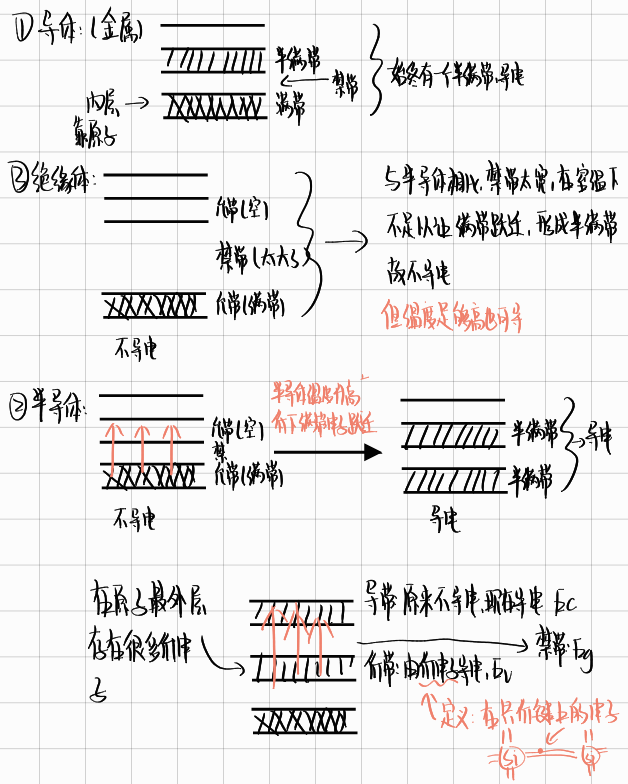 ①导体:(金属)
半满带
禁带
满带
内层
靠原子
始终有一个半满带,导电
②绝缘体:
价带(空)
禁带(太大了)
价带(满带)
不导电
与半导体相比,禁带太宽,在室温下
不足以让满带跃迁,形成半满带
故不导电
但温度足够高也可导
②半导体:
价带(空)
禁
价带(满带)
不导电
半导体温度升高
价下满带电子跃迁
半满带
半满带
导电
导电
在原子最外层
存在很多价电
子
导带:原来不导电,现在导电 Ec
价带:由价电子导电,Ev
禁带:Eg
定义:在共价键上的电子
Si
Si